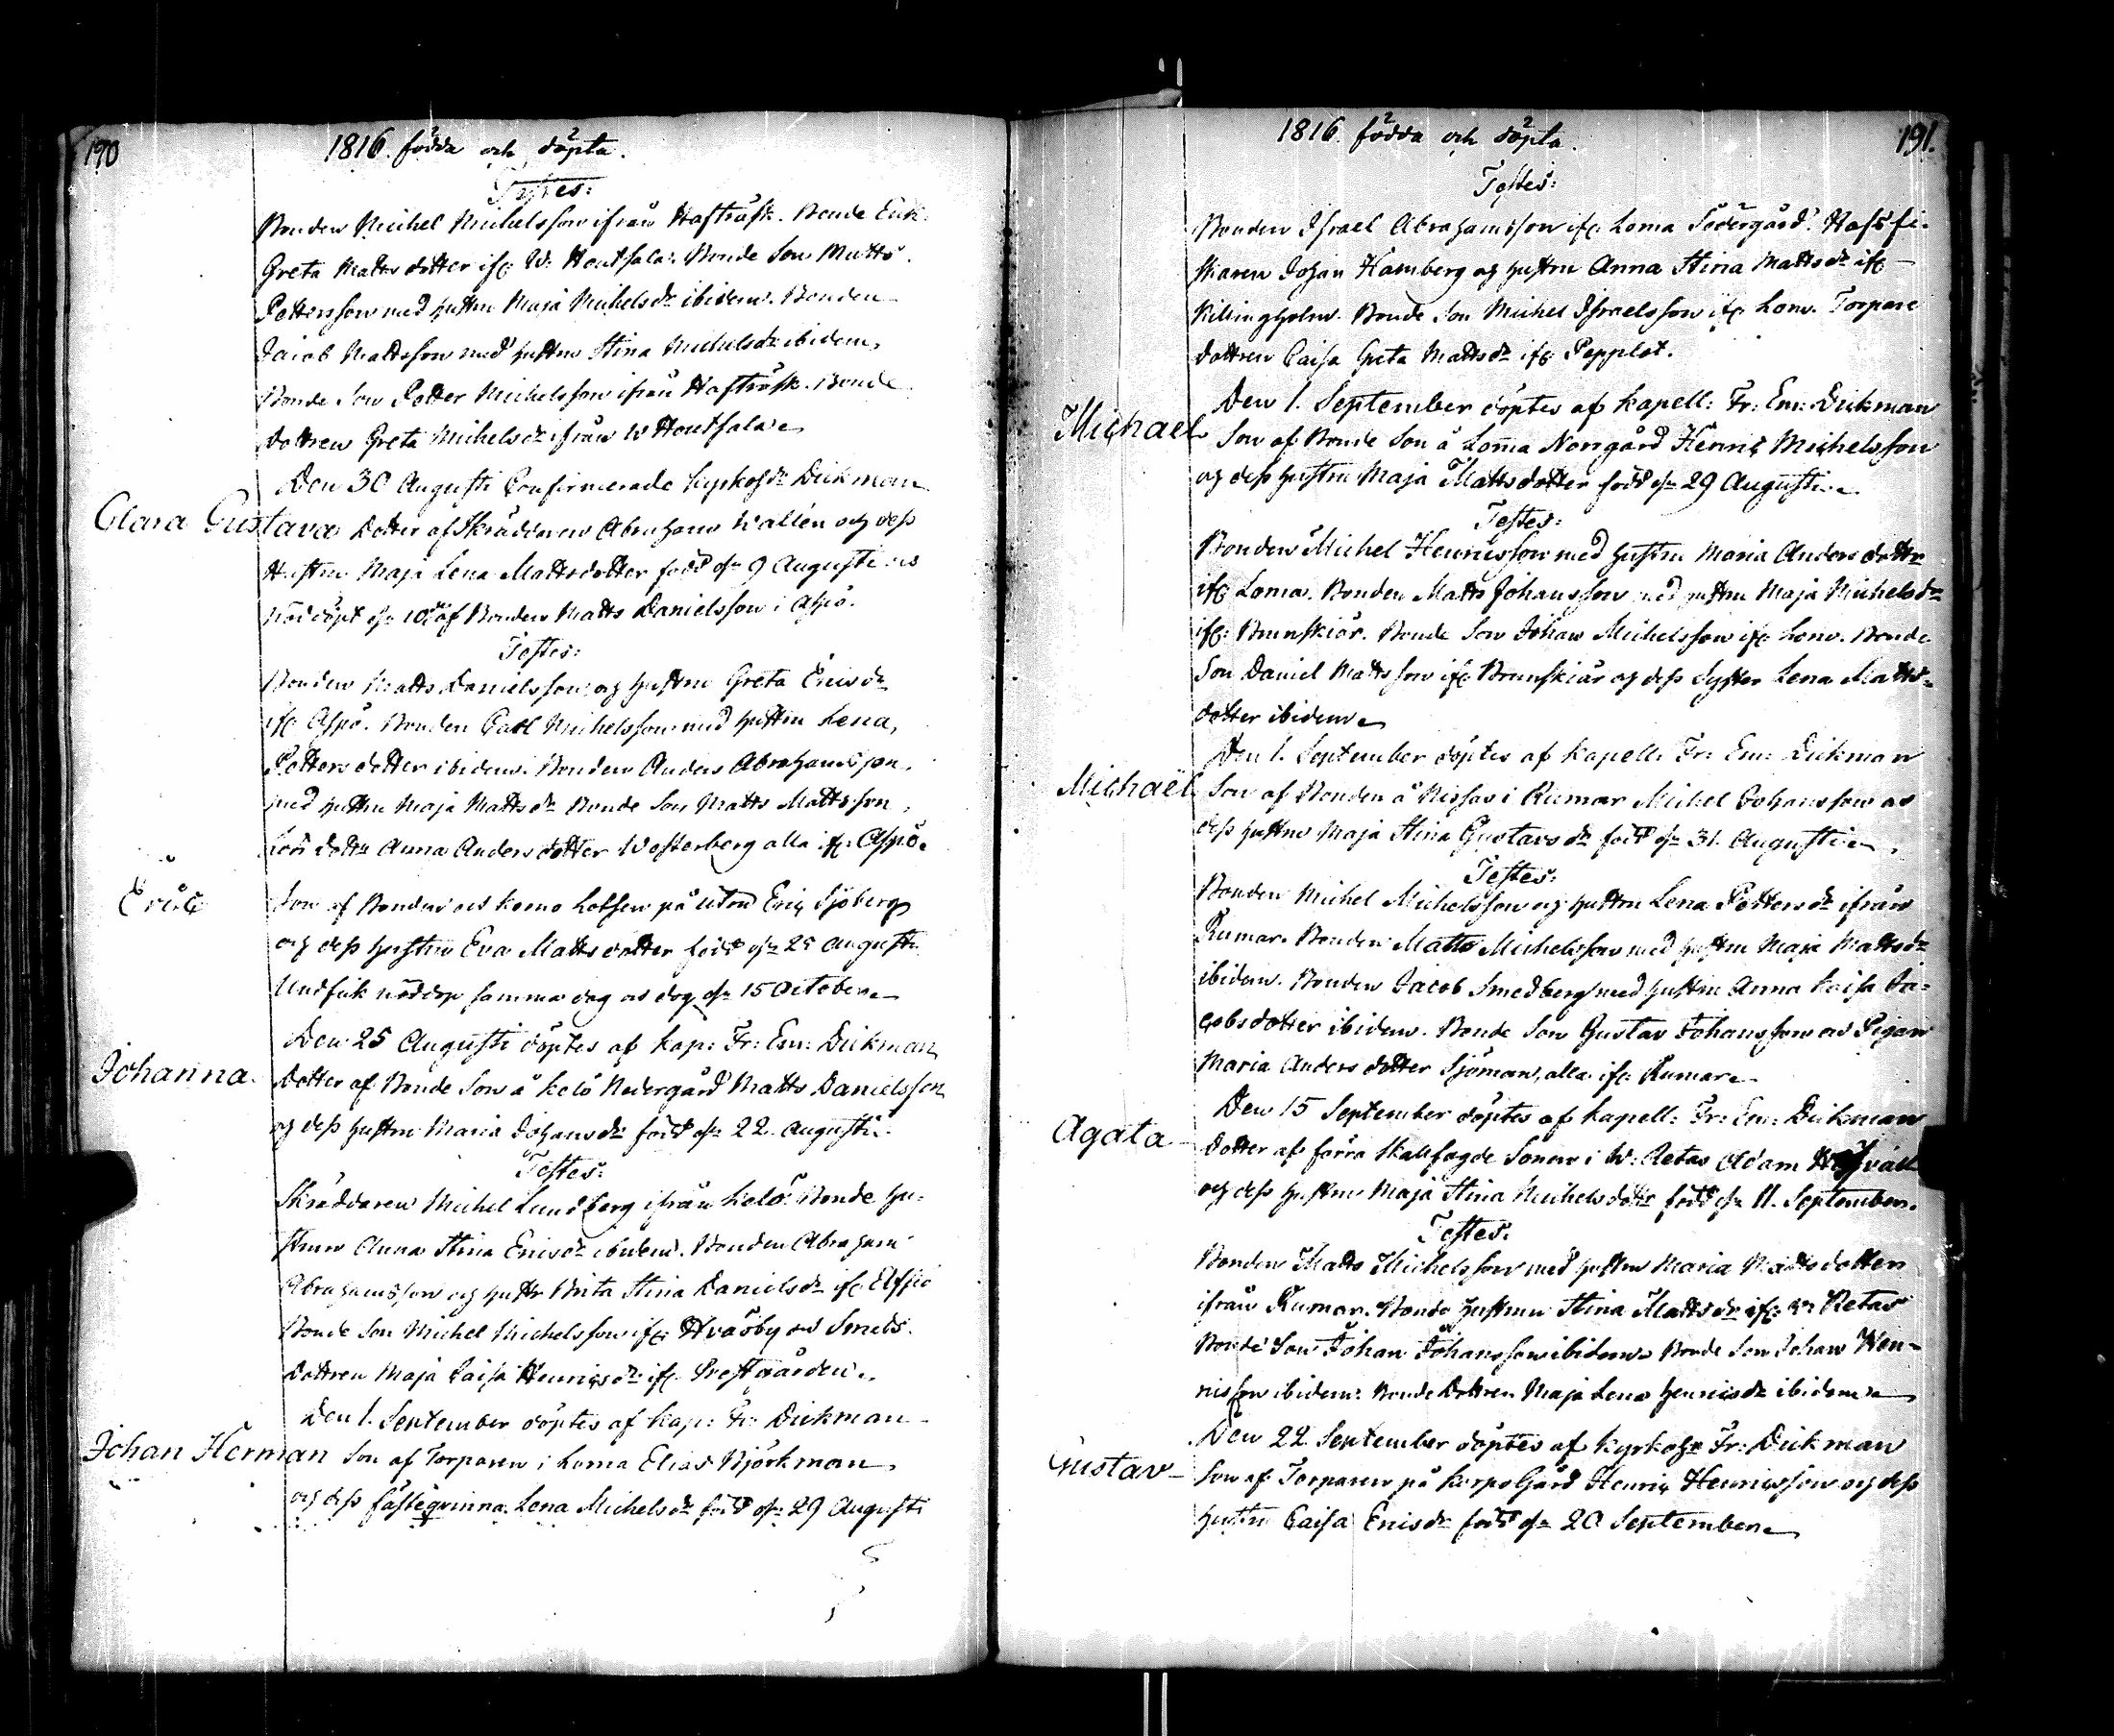 190
1816. födda och döpta.
Testes:
Bonden Michel Michelsson ifrån Hafträsk. Bonde Enk.
Greta Matts dotter if: W: Houtsala. Bonde Son Matts
Pettersson med hustru Maja Michelsdr ibidem. Bonden
Jacob Mattsson med hustru Stina Michelsdr ibidem,
Bonde Son Petter Michelsson ifrån Hafträsk. Bonde
dottren Greta Michelsdr ifrån W Houtsala
Den 30 Augusti Confirmerade Kyrkohdr Dickman
Clara Gustava Dotter af Skräddaren Abraham Wallén och dess
Hustru Maja Lena Mattsdotter född dn 9 Augusti
nöddöpt dn 10de af Bonden Matts Danielsson i Aspö.
Testes:
Bonden Matts Danielsson og hustru Greta Ericsdr
if: Aspö. Bonden Carl Michelsson med hustru Lena
Petters dotter ibidem. Bonden Anders Abrahamsson
med hustru Maja Mattsdr Bonde Son Matts Mattsson,
dottr Anna Anders dotter Westerberg alla if: Aspö.
Eric Son af Bonden och Krono Lotsen på Utön Eric Sjöberg
og dess hustru Eva Matts dotter född dn 25 Augusti
Undfick nöddop samma dag och dog dn 15 October
Den 25 Augusti döptes af Kap: Fr: Em: Dickman
Johanna. Dotter af Bonde Son å Kälö Nedergård Matts Danielsson
og dess hustru Maria Johansdr född dn 22 Augusti.
Testes:
Skräddaren Michel Lundberg ifrån Kälö. Bonde hu-
strun Anna Stina Ericsdr ibidem. Bonden Abraham
Abrahamsson og hustr Brita Stina Danielsdr if: Elfsjö
Bonde Son Michel Michelsson if: Hvasby och Smeds
dottren Maja Caisa Henricsdr if: Prestgården.
Den 1. September döptes af Kap: Fr: Dickman
Johan Herman Son af Torparen i Loma Elias Björkman
og dess fästeqvinna Lena Michelsdr född dn 29 Augusti
191.
1816. födda och döpta.
Testes:
Bonden Israel Abrahamsson if: Loma Södergård. Hafsfi-
skaren Johan Hamberg og hustru Anna Stina Mattsdr if:
Killingholm. Bonde Son Michel Israelsson if: Lom. Torpare
dottren Caisa Greta Mattsdr if: Pepplot.
Den 1. September döptes af Kapell: Fr: Em: Dickman
Michael Son af Bonde Son å Loma Norrgård Henric Michelsson
og dess hustru Maja Mattsdotter född dn 29 Augusti.
Testes:
Bonden Michel Henricsson med hustru Maria Anders dottr
if: Loma. Bonden Matts Johansson med hustru Maja Michelsdr
if: Brunskiär. Bonde Son Johan Michelsson if: Lom. Bonde
Son Daniel Mattsson if: Brunskiär og dess Syster Lena Matts-
dotter ibidem
Den 1. September döptes af Kapell: Fr: Em: Dickman
Michaël Son af Bonden å Nissas i Rumar Michel Johansson och
dess hustru Maja Stina Gustavsdr född dn 31. Augusti
Testes:
Bonden Michel Michelsson og hustru Lena Pettersdr ifrån
Rumar. Bonden Matts Michelsson med hustru Maja Mattsdr
ibidem. Bonden Jacob Smedberg med hustru Anna Caisa Ja-
cobsdotter ibidem. Bonde Son Gustav Johansson och Pigan
Maria Anders dotter Sjöman, alla if: Rumar
Den 15 September döptes af Kapell: Fr: Em: Dickman
Agata Dotter af förra Skallfogde Sonen i W: Retas Adam
og dess hustru Maja Stina Michels dottr född dn 11. September.
Testes:
Bonden Matts Michelsson med hustru Maria Mattsdotter
ifrån Rumar. Bonde hustrun Stina Mattsdr if: W: Retas
Bonde Son Johan Johansson ibidem. Bonde Son Johan Hen-
ricsson ibidem. Bonde Dottren Maja Lena Henricsdr ibidem
Den 22 September döptes af Kyrkohr Fr: Dickman
Gustav Son af Torparen på Korpo Gård Henric Henricsson og dess
hustru Caisa Ericsdr född dn 20 September